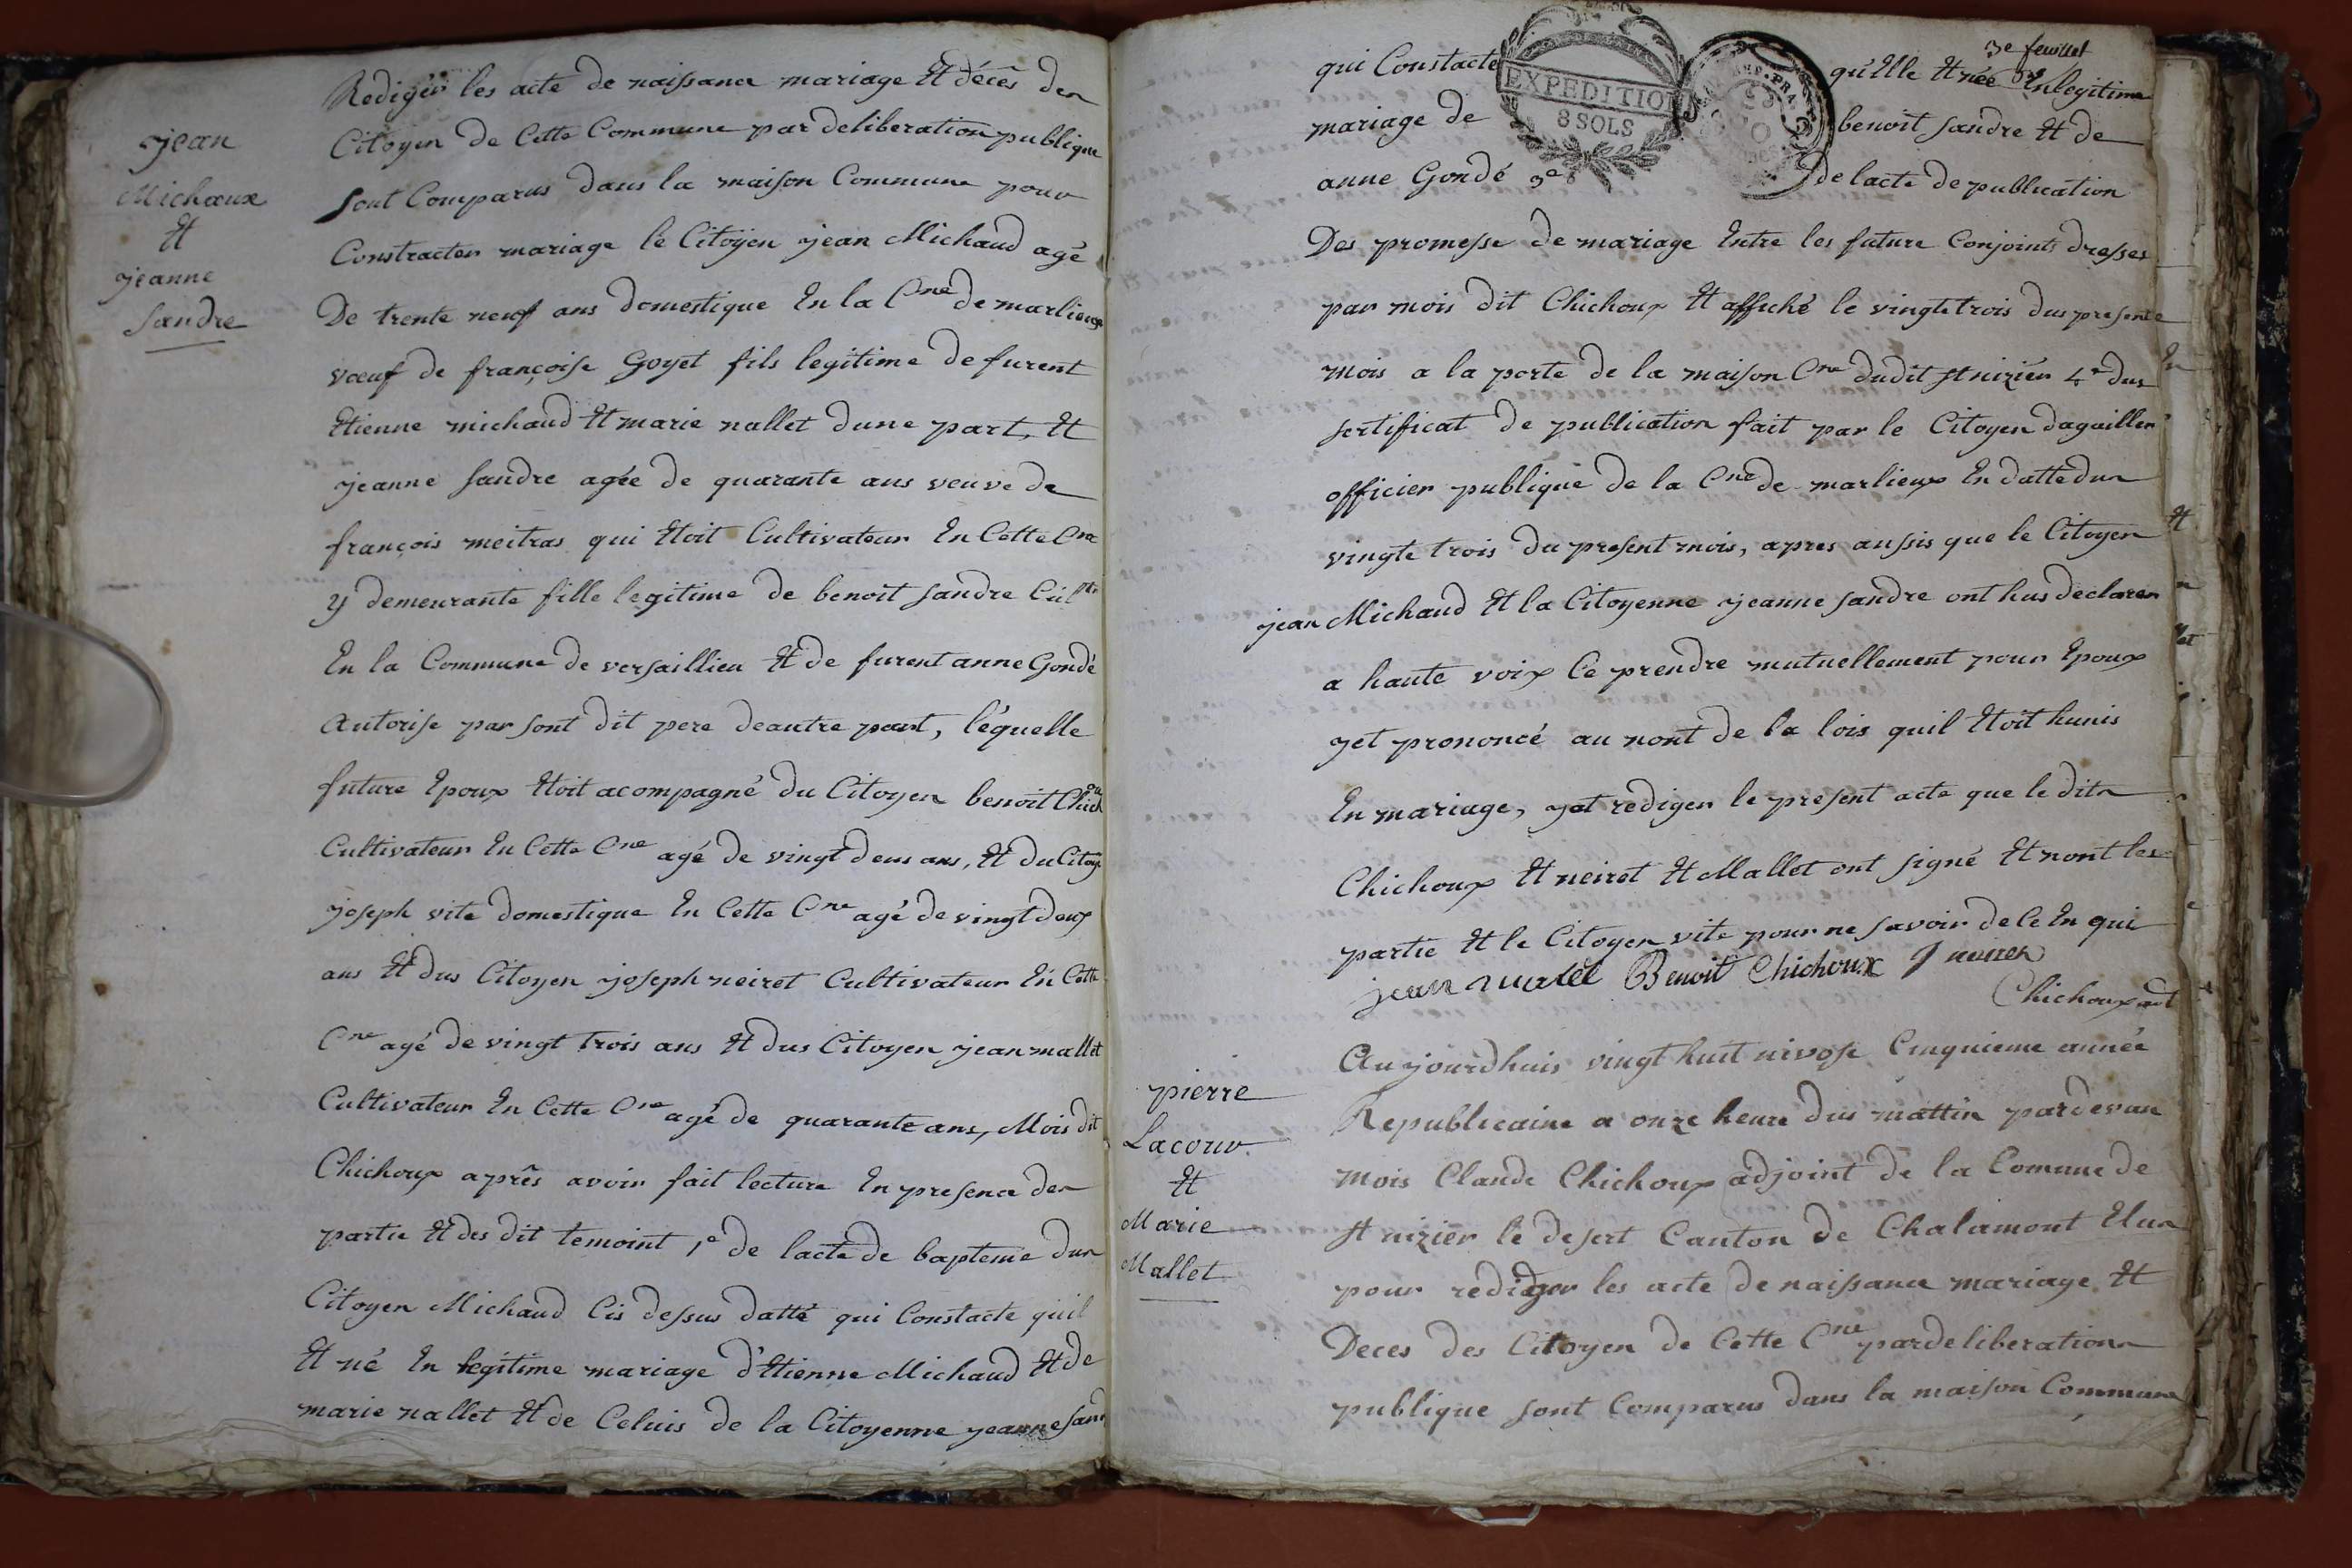 jean
Michaux
Et
jeanne
Sandre
Rediger les acte de naissance mariage Et décès des
Citoyen de Cette Commune par deliberation publique
sont Comparus dans la maison Commune pour
Constracter mariage le Citoyen jean Michaud agé
De trente neuf ans domestique En la Cne de marlieux
vœuf de françoise Goyet fils legitime de furent
Etienne michaud Et marie nallet dune part, Et
jeanne sandre agée de quarante ans veuve de
françois meitras qui Etoit Cultivateur En Cette Cne
y demeurante fille legitime de benoit sandre Cul
En la Commune de versaillieu Et de furent anne Gondé
Autorise par sont dit pere deautre part, léquelle
future Epoux Etoit acompagné du Citoyen benoit Chich
Cultivateur En Cette Cne agé de vingt deus ans, Et du Citoy
joseph vite domestique En Cette Cne agé de vingt deux
ans Et dus Citoyen joseph neiret Cultivateur En Cette
Cne agé de vingt trois ans Et dus Citoyen jean mallet
Cultivateur En Cette Cne agé de quarante ans, Mois dit
Chichoux après avoir fait lecture En presence des
partie Et des dit temoint 1e de lacte de bapteme du
Citoyen Michaud Cis dessus datté qui Constacte quil
Et né En legitime mariage d'Etienne Michaud Et de
marie nallet Et de Celuis de la Citoyenne jeanne Sand
3e feuillet
qui Constacte EXPEDITION 8 SOLS qu'Elle Et née En legitime
mariage de benoit sandre Et de
anne Gondé 3e de lacte de publication
Des promesse de mariage Entre les future Conjoints dresses
par mois dit Chichoux Et affiché le vingte trois dus presente
mois a la porte de la maison Cne dudit st nizier 4e dus
sertificat de publication fait par le Citoyen dagailler
officier publique de la Cne de marlieux En datte du
vingte trois du present mois, apres aussis que le Citoyen
jean Michaud Et la Citoyenne jeanne sandre ont hus declarer
a haute voix Ce prendre mutuellement pour Epoux
jet prononcé au nont de la lois quil Etoit hunis
En mariage, jet rediger le present acte que le dit
Chichoux Et neiret Et Mallet ont signé Et nont les
partie Et le Citoyen vite pour ne savoir de Ce En qui
jean mallet Benoit Chichoux J neiret
Chichoux adt
pierre
Lacour
Et
Marie
Mallet
Aujourdhuis vingt huit nivose Cinquieme année
Republicaine a onze heure dus mattin pardevan
mois Claude Chichoux adjoint de la Comune de
st nizier le desert Canton de Chalamont Elus
pour rediger les acte de naissance mariage Et
Deces des Citoyen de Cette Cne par deliberation
publique sont Comparus dans la maison Commune